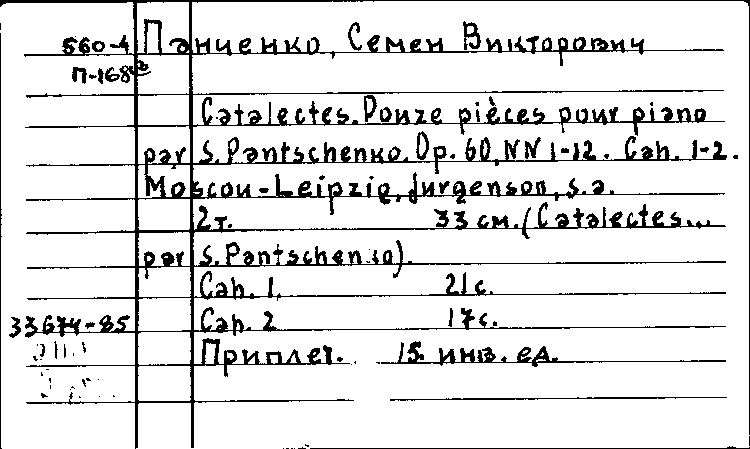 560-4 Панченко, Семен Викторович
П-168
Catalectes. Douze pièces pour piano
par S. Pantschenko. Op. 60, NN 1-12. Cah. 1-2.
Moscou-Leipzig, Jurgenson, s.a.
2т. 33 см. (Catalectes...
par S. Pantschenko).
Cah. 1. 21 с.
33674-85 Cah. 2 17 с.
Приплет. 15. инв. ед.